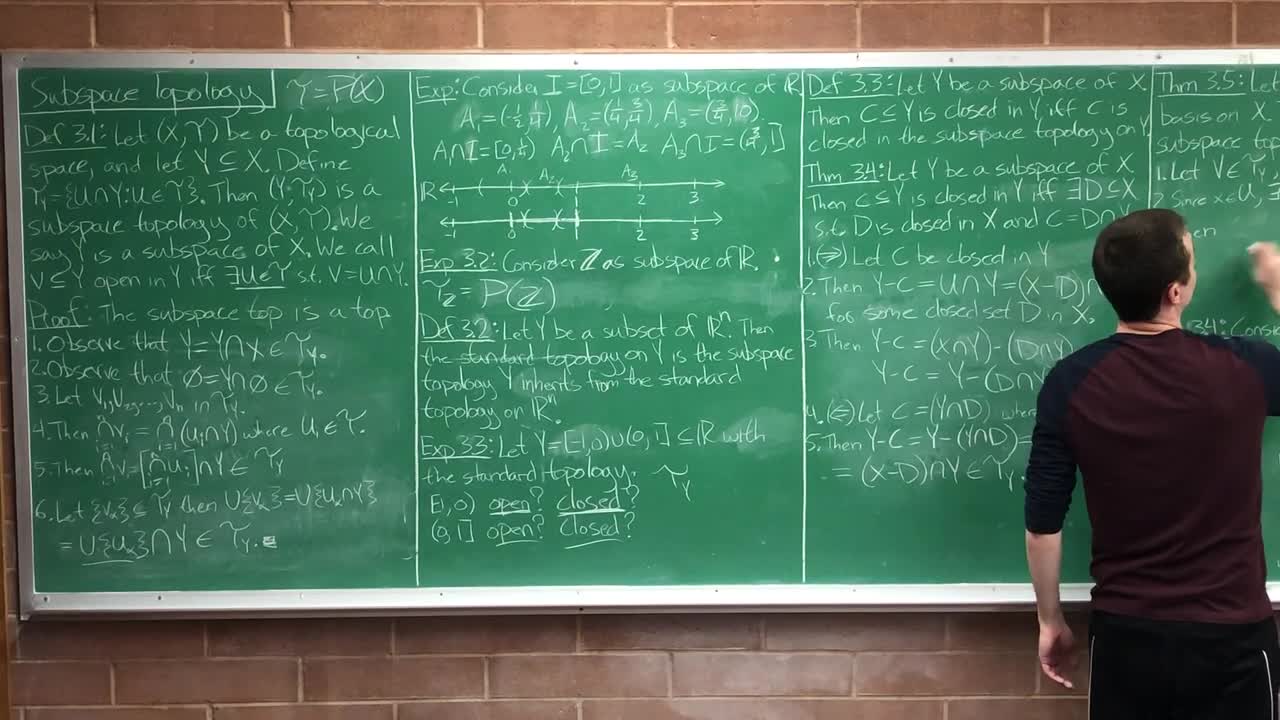 Subspace Topology
𝒯=P(X)
Def 3.1: Let (X,𝒯) be a topological
space, and let Y⊆X. Define
𝒯_Y={U∩Y:U∈𝒯}. Then (Y,𝒯_Y) is a
subspace topology of (X,𝒯). We
say Y is a subspace of X. We call
V⊆Y open in Y iff ∃U∈𝒯 st. V=U∩Y.
Proof: The subspace top is a top
1. Observe that Y=Y∩X∈𝒯_Y.
2. Observe that ∅=Y∩∅∈𝒯_Y.
3. Let V₁,V₂,...,Vₙ in 𝒯_Y.
4. Then ∩Vᵢ=∩(Uᵢ∩Y) where Uᵢ∈𝒯.
5. Then ∩Vᵢ=[∩Uᵢ]∩Y∈𝒯_Y
6. Let {V_α}⊆𝒯_Y then ∪{V_α}=∪{U_α∩Y}
=∪{U_α}∩Y∈𝒯_Y.
Exp: Consider I=[0,1] as subspace of ℝ
A₁=(-½,¼), A₂=(¼,¾), A₃=(¾,10).
A₁∩I=[0,¼) A₂∩I=A₂ A₃∩I=(¾,1]
A₁ A₂ A₃
ℝ -1 0 2 3
-1 0 2 3
Exp 3.2: Consider ℤ as subspace of ℝ.
𝒯_ℤ=P(ℤ)
Def 3.2: Let Y be a subset of ℝⁿ. Then
the standard topology on Y is the subspace
topology Y inherits from the standard
topology on ℝⁿ.
Exp 3.3: Let Y=[-1,0)∪(0,1]⊆ℝ with
the standard topology. 𝒯_Y
[-1,0) open? closed?
(0,1] open? closed?
Def 3.3: Let Y be a subspace of X
Then C⊆Y is closed in Y iff C is
closed in the subspace topology on Y
Thm 3.4: Let Y be a subspace of X
Then C⊆Y is closed in Y iff ∃D⊆X
s.t. D is closed in X and C=D∩Y
1.(⇒) Let C be closed in Y
2. Then Y-C=U∩Y=(X-D)∩
for some closed set D in X,
3 Then Y-C=(X∩Y)-(D∩Y
Y-C=Y-(D∩Y
4.(⇐) Let C=(Y∩D)
5. Then Y-C=Y-(Y∩D)=
=(X-D)∩Y∈𝒯_Y.
Thm 3.5: Let
basis on X
subspace top
1. Let V∈𝒯_Y
2. Since x∈U,